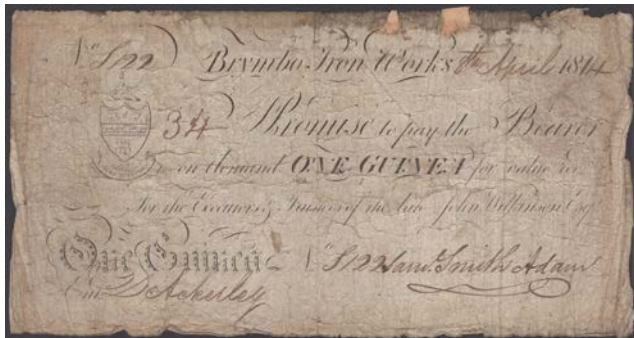 No. 8122 Brymbo Iron Works April 1814
34 I Promise to pay the Bearer
on demand ONE GUINEA for value rec
For the Executors & Trustees of the late John Wilkinson Esqr.
One Guinea No. 8122 Saml. Smith Adam
Ent. D Ackerley